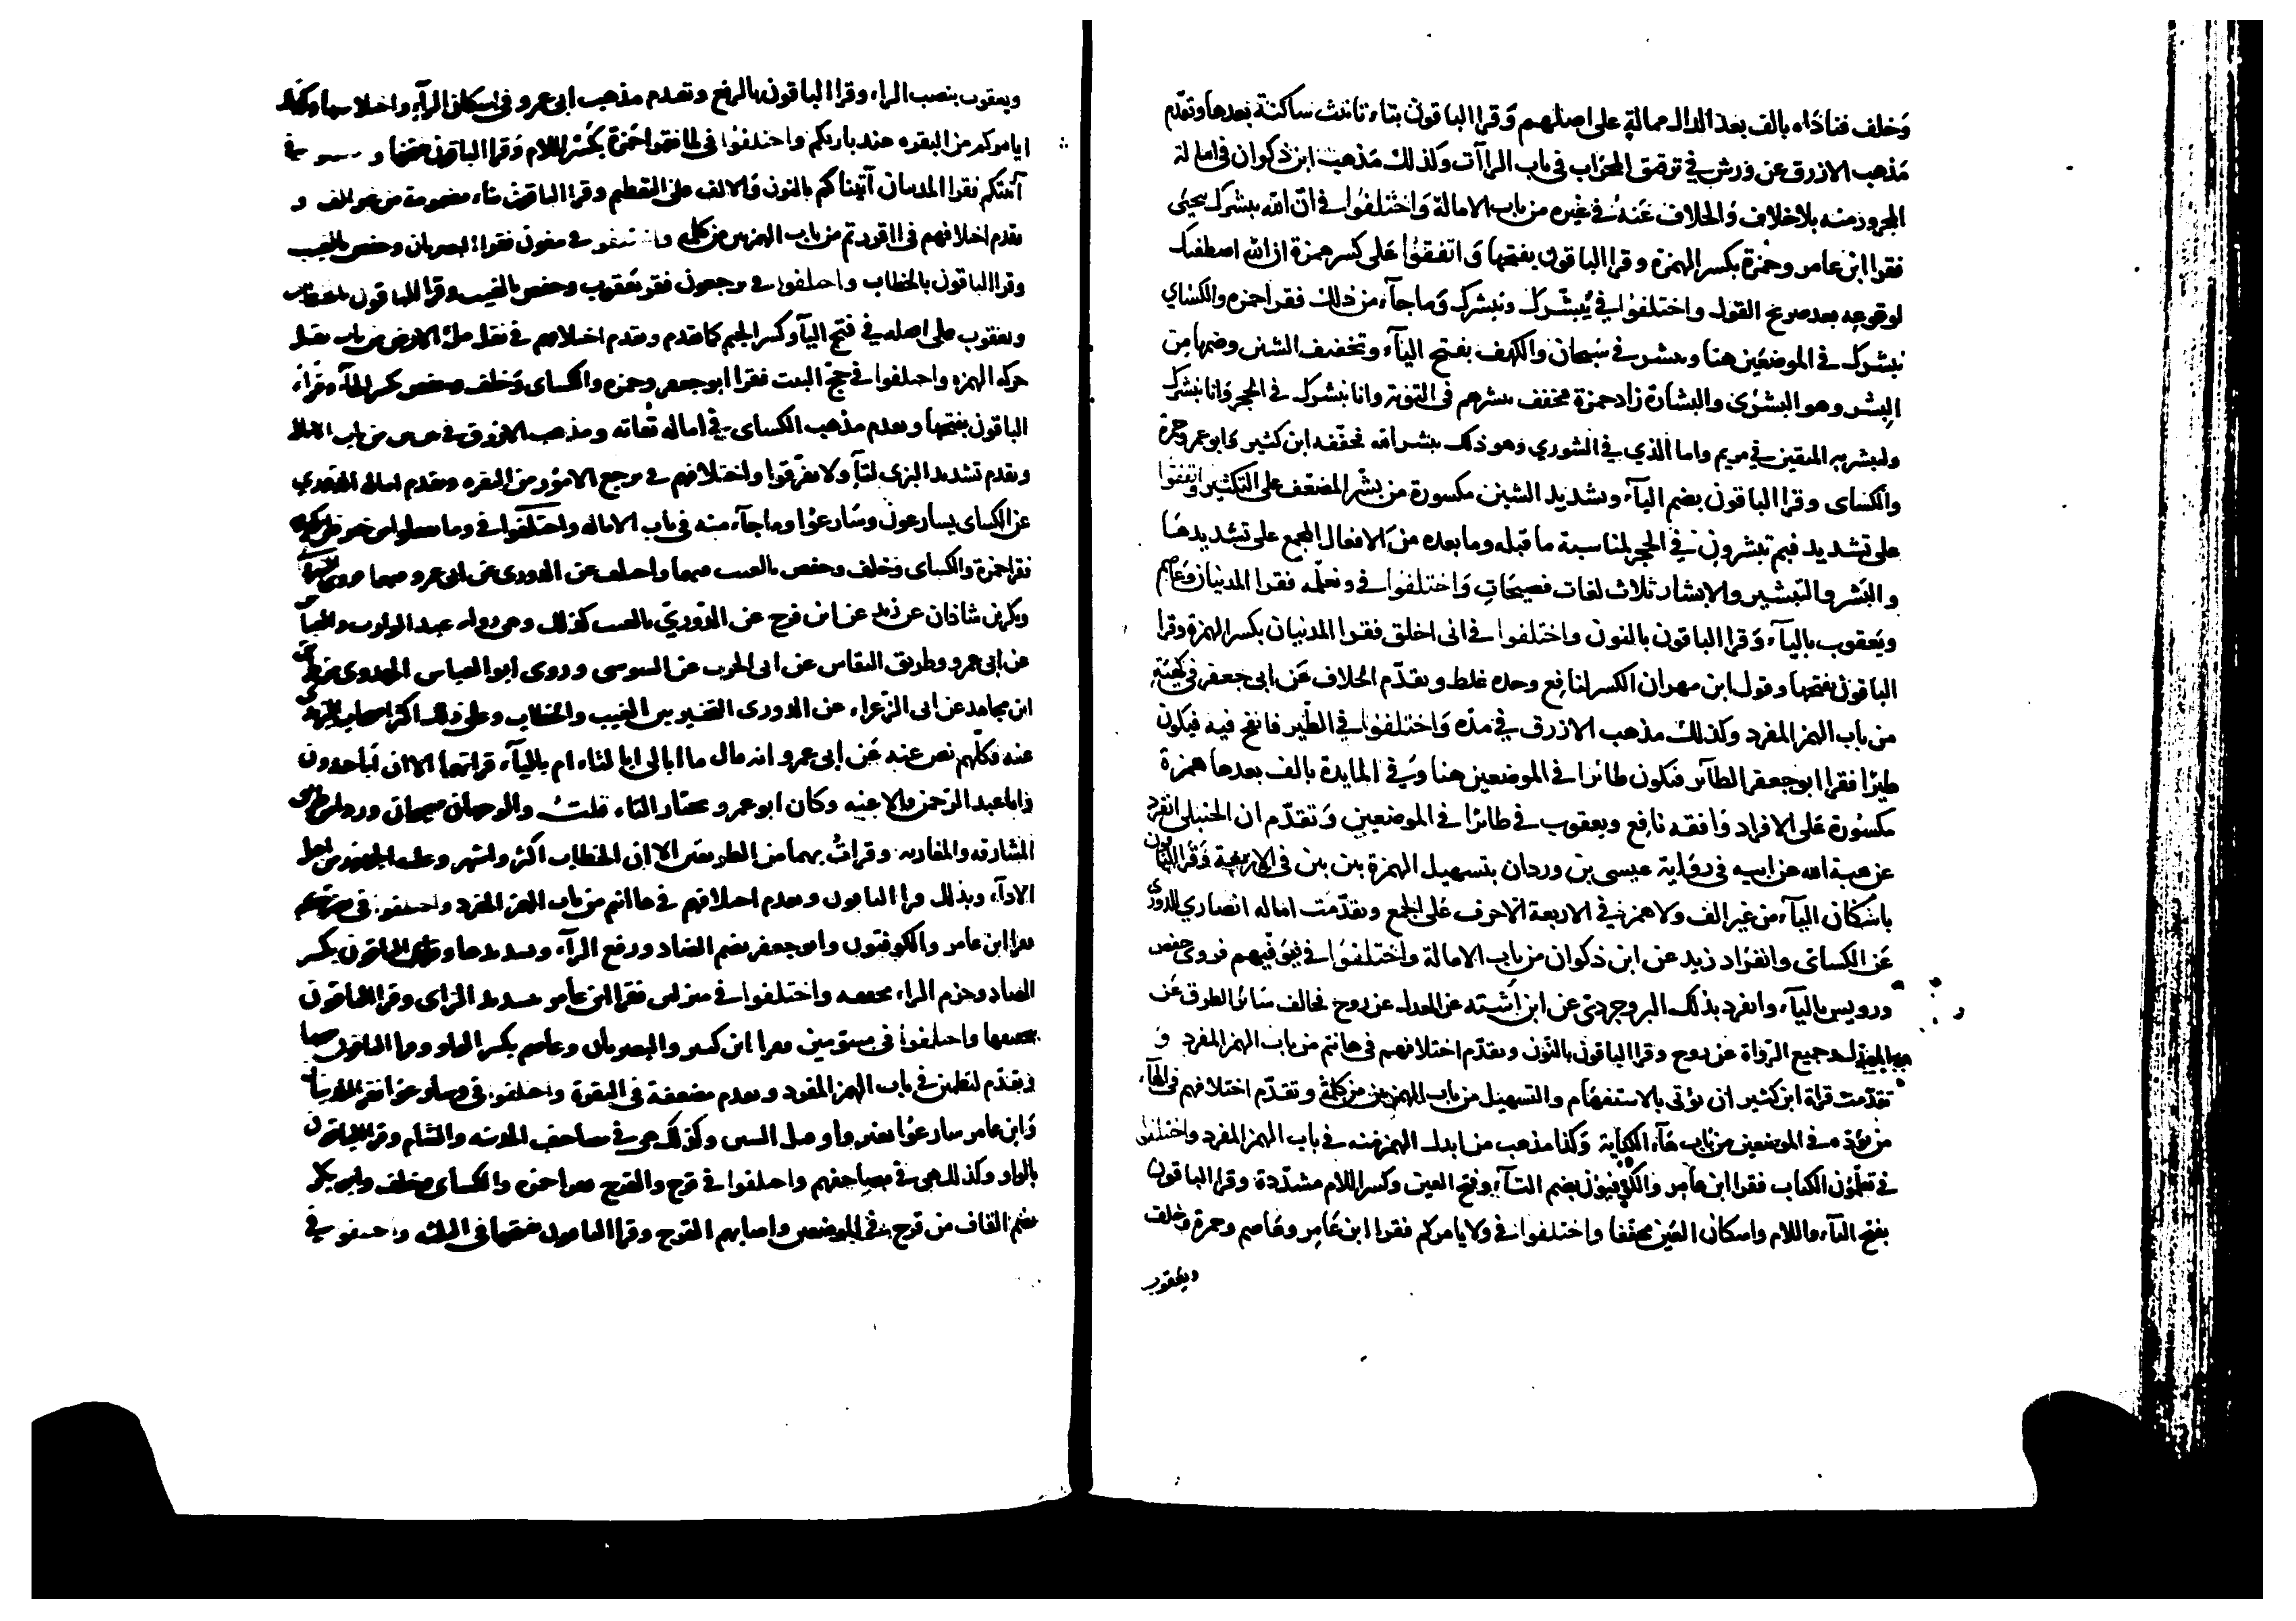 وخلف فناداه بالف بعد الدال ممالة على اصلهم وقرا الباقون بتاء تانيث ساكنة بعدها وتقدم
مذهب الازرق عن ورش في ترقيق المحراب في باب الراآت وكذلك مذهب ابن ذكوان في امالة
المجرور منه بلا خلاف والخلاف عنه في غيره من باب الامالة واختلفوا في ان الله يبشرك بيحيى
فقرا ابن عامر وحمزة بكسر الهمزة وقرا الباقون بفتحها واتفقوا على كسر همزة ان الله اصطفيك
لوقوعه بعد صريح القول واختلفوا في يبشرك ونبشرك وما جآء من ذلك فقرا حمزة والكساي
يبشرك في الموضعين هنا ويبشر في سبحان والكهف بفتح اليآء وتخفيف الشين وضمها من
البشر وهو البشرى والبشارة زاد حمزة فخفف يبشرهم في التوبة وانا نبشرك في الحجر وانا نبشرك
ولتبشر به المتقين في مريم واما الذي في الشوري وهو ذلك يبشر الله فخففه ابن كثير وابو عمرو وحمزة
والكساي وقرا الباقون بضم اليآء وتشديد الشين مكسورة من بشر المضعف على التكثير واتفقوا
على تشديد فبم تبشرون في الحجر لمناسبة ما قبله وما بعده من الافعال المجمع على تشديدها
والبشر والتبشير والابشار ثلاث لغات فصيحات واختلفوا في ونعلمه فقرا المدنيان وعاصم
ويعقوب باليآء وقرا الباقون بالنون واختلفوا في انى اخلق فقرا المدنيان بكسر الهمزة وقرا
الباقون بفتحها وقول ابن مهران الكسر لنافع وحده غلط وتقدم الخلاف عن ابى جعفر في كهيئة
من باب الهمز المفرد وكذلك مذهب الازرق في مده واختلفوا في الطير فانفخ فيه فيكون
طيرا فقرا ابو جعفر الطآئر فيكون طائرا في الموضعين هنا وفي المايدة بالف بعدها همزة
مكسورة على الافراد وافقه نافع ويعقوب في طائرا في الموضعين وتقدم ان الحنبلى انفرد
عن هبة الله عن ابيه في رواية عيسى بن وردان بتسهيل الهمزة بين بين في الاربعة وقرا الباقون
باسكان اليآء من غير الف ولا همز في الاربعة الاحرف على الجمع وتقدمت امالة انصاري للدوري
عن الكسائى وانفراد زيد عن ابن ذكوان من باب الامالة واختلفوا في فيوفيهم فروى حفص
ورويس باليآء وانفرد بذلك البروجردى عن ابن اشته عن المعدل عن روح فخالف سائر الطرق عن
المعدل وجميع الرواة عن روح وقرا الباقون بالنون وتقدم اختلافهم في هانتم من باب الهمز المفرد و
تقدمت قراة ابن كثير ان يؤتى بالاستفهام والتسهيل من باب الهمزتين من كلمة وتقدم اختلافهم في الهآء
من يؤده في الموضعين من باب هآء الكناية وكذا مذهب من ابدل الهمز منه في باب الهمز المفرد واختلفوا
في تعلمون الكتاب فقرا ابن عامر والكوفيون بضم التآء وفتح العين وكسر اللام مشددة وقرا الباقون
بفتح التآء واللام واسكان العين مخففا واختلفوا في ولا يامركم فقرا ابن عامر وعاصم وحمزة وخلف
ويعقوب
ويعقوب بنصب الراء وقرا الباقون بالرفع وتقدم مذهب ابى عمرو في اسكان الرآء واختلاسها وكذلك
ايامركم من البقره عند بارئكم واختلفوا في لما فقرا حمزة بكسر اللام وقرا الباقون بفتحها و في
آتيتكم فقرا المدنيان آتيناكم بالنون والالف على التعظيم وقرا الباقون بتاء مضمومة من غير الف و
تقدم اختلافهم في ااقررتم من باب الهمزتين من كلمه في يبغون فقرا البصريان وحفص بالغيب
وقرا الباقون بالخطاب واختلفوا في يرجعون فقرا يعقوب وحفص بالغيب وقرا الباقون بالخطاب
ويعقوب على اصله في فتح اليآ وكسر الجيم كما تقدم وتقدم اختلافهم في نقل ملء الارض من باب نقل
حركه الهمزه واختلفوا في حج البيت فقرا ابو جعفر وحمزه والكساى وخلف وحفص بكسر الحآء وقراه
الباقون بفتحها وتقدم مذهب الكساى في اماله تقاته ومذهب الازرق من باب الامالة
وتقدم تشديد البزى لتآء ولا تفرقوا واختلافهم في ترجع الامور من البقره وتقدم اماله الدوري
عن الكساى يسارعون وسارعوا وما جآء منه في باب الاماله واختلفوا في وما تفعلوا من خير فلن تكفروه
فقرا حمزة والكساى وخلف وحفص بالغيب فيهما واختلف عن الدورى عن ابى عمرو فيهما فروى
وبكر بن شاذان عن زيد عن ابن فرح عن الدوري بالغيب كذلك وهى رواية عبد الوارث والعباس
عن ابى عمرو وطريق النقاش عن ابى الحرث عن السوسى وروى ابو العباس المهدوى من طريق
ابن مجاهد عن ابى الزعراء عن الدورى التخيير بين الغيب والخطاب وعلى ذلك اكثر اصحاب اليزيدى
عنه وكلهم نص عنه عن ابى عمرو انه قال ما ابالى ابالتاء ام باليآء قراتهما الا ان ابا حمدون
وابا عبد الرحمن قالا عنه وكان ابو عمرو يختار التاء قلت والوجهان صحيحان وردا من طريق
المشارقه والمغاربه وقرات بهما من الطريقين الا ان الخطاب اكثر واشهر وعليه الجمهور من اهل
الادآء وبذلك قرا الباقون وتقدم اختلافهم في هاانتم من باب الهمز المفرد واختلفوا في يضركم
فقرا ابن عامر والكوفيون وابو جعفر بضم الضاد ورفع الرآء وتشديدها وقرا الباقون بكسر
الضاد وجزم الراء مخففه واختلفوا في منزلين فقرا ابن عامر بتشديد الزاى وقرا الباقون
بتخفيفها واختلفوا في مسومين فقرا ابن كثير والبصريان وعاصم بكسر الواو وقرا الباقون بفتحها
وتقدم لتطمئن في باب الهمز المفرد وتقدم مضعفة في البقرة واختلفوا في وسارعوا فقرا المدنيان
وابن عامر سارعوا بغير واو قبل السين وكذلك هى في مصاحف المدينه والشام وقرا الباقون
بالواو وكذلك هى في مصاحفهم واختلفوا في قرح والقرح فقرا حمزه والكساى وخلف وابو بكر
بضم القاف من قرح في الموضعين واصابهم القرح وقرا الباقون بفتحها في الثلثه واختلفوا في